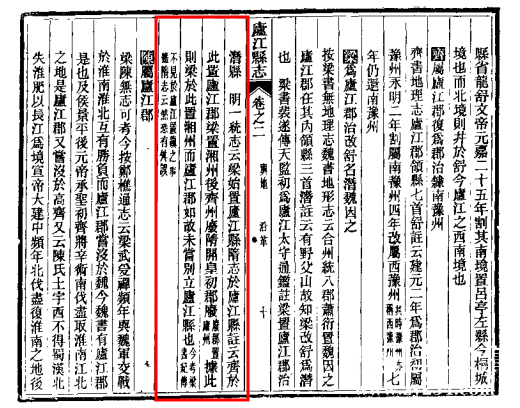 縣首龍舒文帝元嘉二十五年割其南境置呂亭左縣今桐城
境也而北境則并於舒今廬江之西南境也
齊屬廬江郡復為郡治隸南豫州
齊書地理志廬江郡領縣七首舒註云建元二年為郡治初屬
豫州永明二年割屬南豫州四年改屬西豫州
年仍還南豫州
梁為廬江郡治改舒名潛魏因之
按梁書無地理志魏書地形志云合州統八郡蕭衍置魏因之
廬江郡在其內領縣三首潛註云有野父山故知梁改舒為潛
也 梁書裴邃傳天監初為廬江太守通鑑註梁置廬江郡治
廬江縣志 卷之二 輿地 沿革 十
潛縣 明一統志云梁始置廬江縣隋志於廬江縣註云齊於
此置廬江郡梁置湘州後齊州廢隋開皇初郡廢 據此
則梁於此置湘州而廬江郡如故未嘗別立廬江縣也
陳屬廬江郡
梁陳無志可考今按鄭樵通志云梁武受禪頻年與魏軍交戰
於淮南淮北互有勝負而廬江郡嘗沒於魏今魏書有廬江郡
是也及侯景平後元帝承聖初齊將辛術南伐盡取淮南江北
之地是廬江郡又嘗沒於高齊又云陳氏土宇西不得蜀漢北
失淮肥以長江為境宣帝大建中頻年北伐盡復淮南之地後